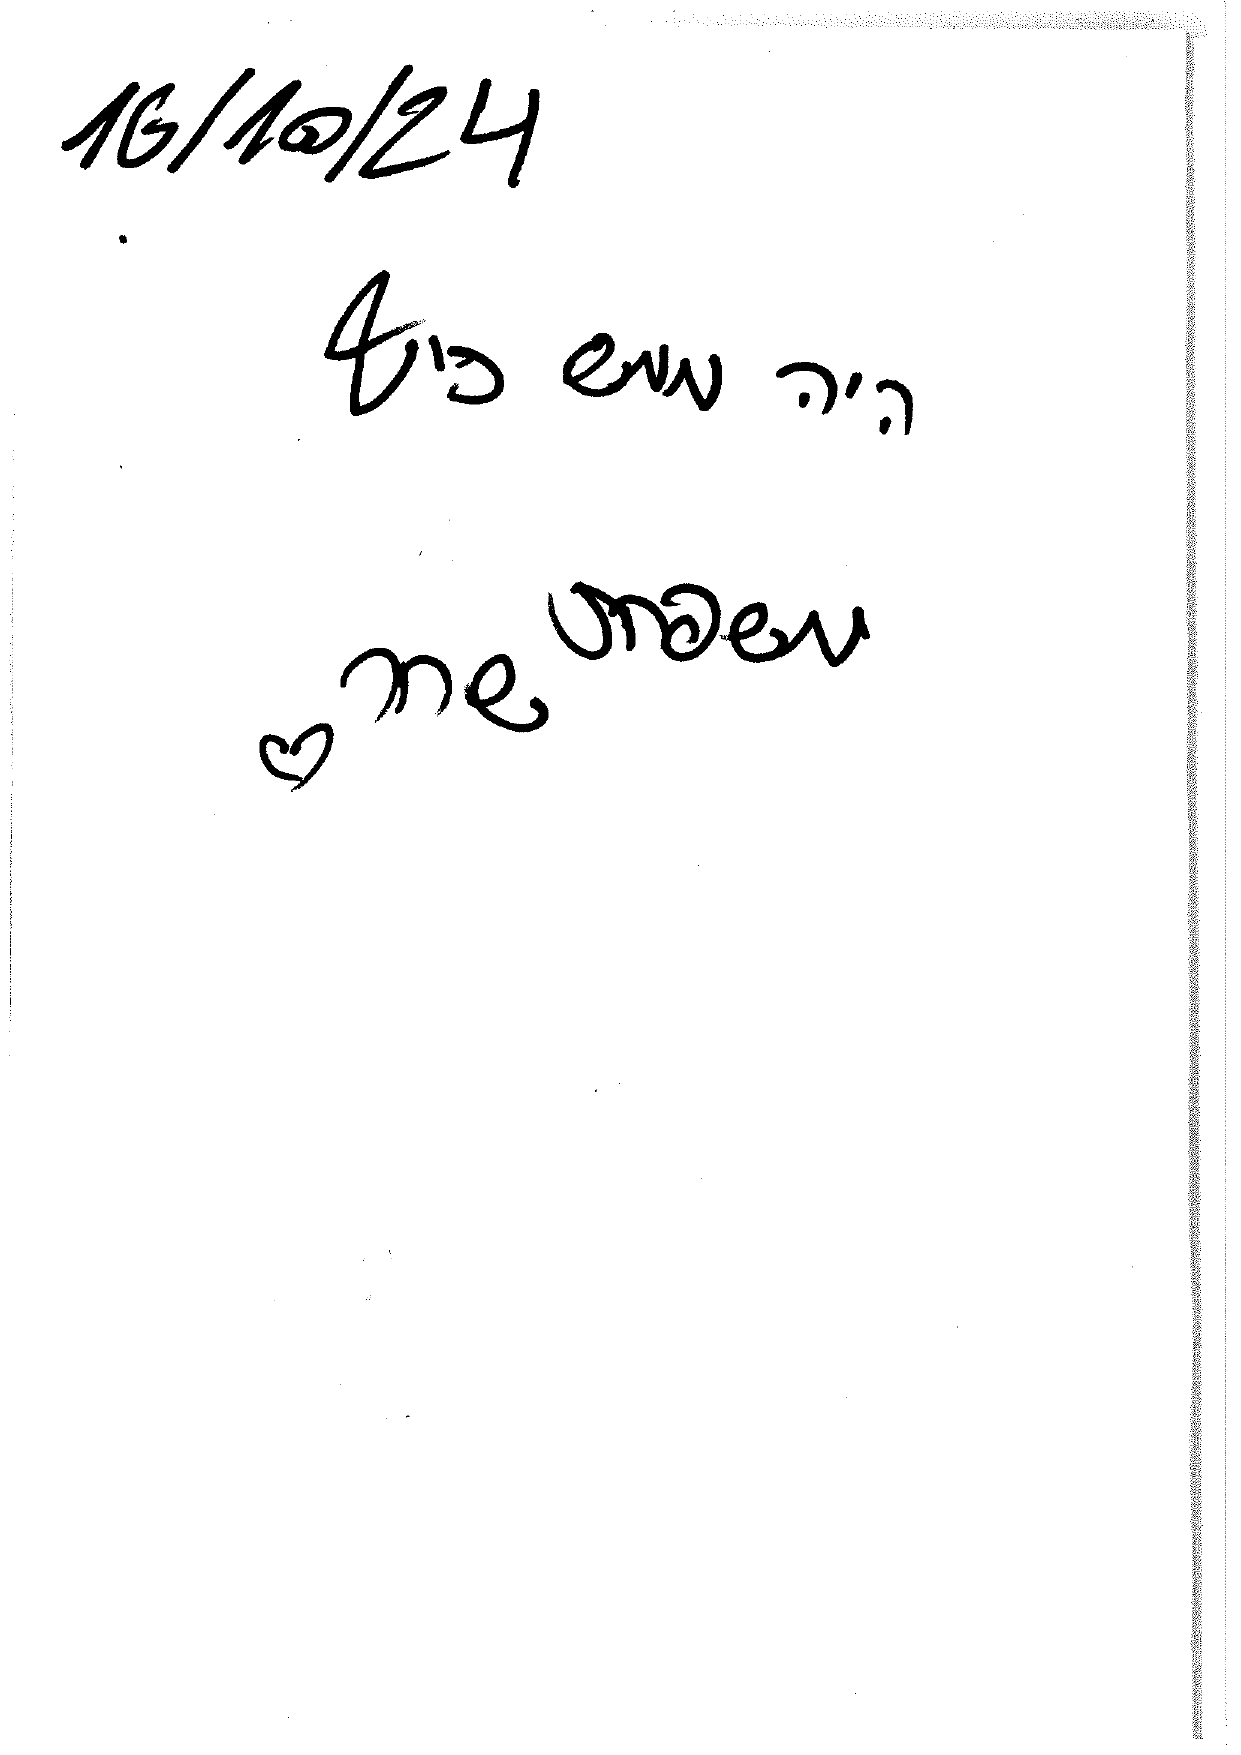 16/10/24
היה ממש כיף
משפחת
שחר ♡